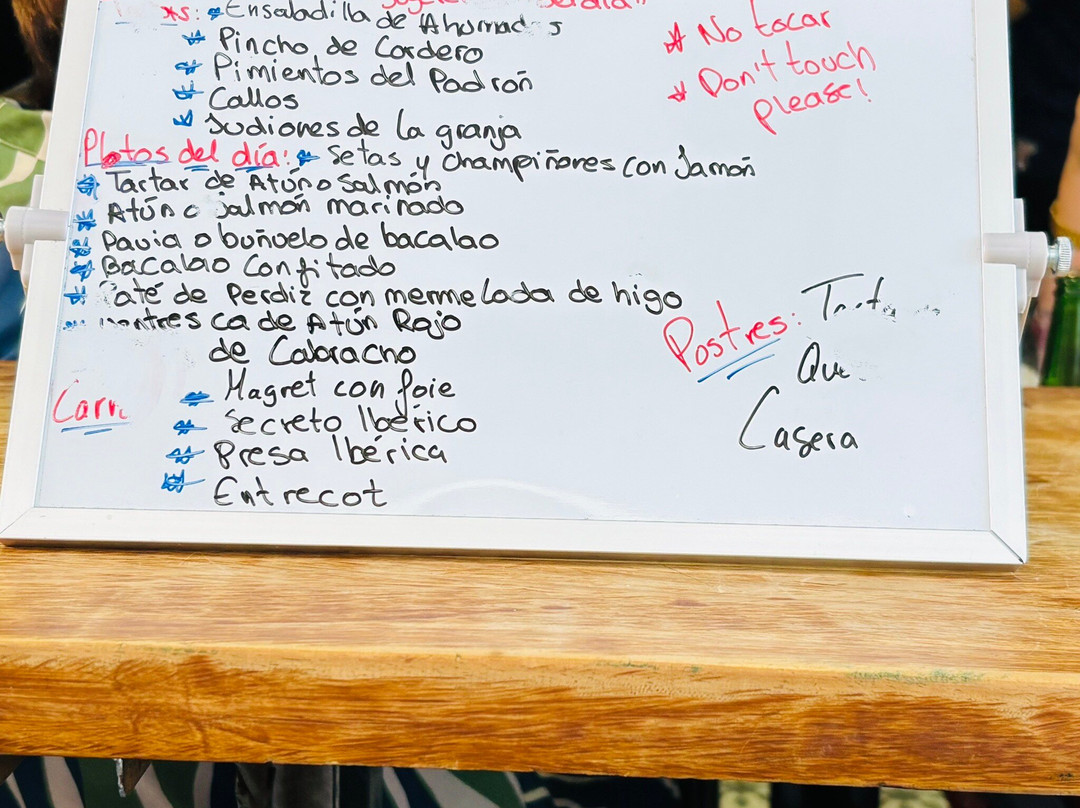 Ensaladilla de Ahumad s
Pincho de Cordero
Pimientos del Padrón
Callos
Judiones de la granja
Platos del día: Setas y champiñones con Jamón
Tartar de Atún o Salmón
Atún o salmón marinado
Pavia o buñuelo de bacalao
Bacalao Confitado
Paté de Perdiz con mermelada de higo
ventresca de Atún Rojo
de Cabracho
Carn
Magret con foie
Secreto Ibérico
Presa Ibérica
Entrecot
No tocar
Don't touch
please!
Postres:
Que
Casera